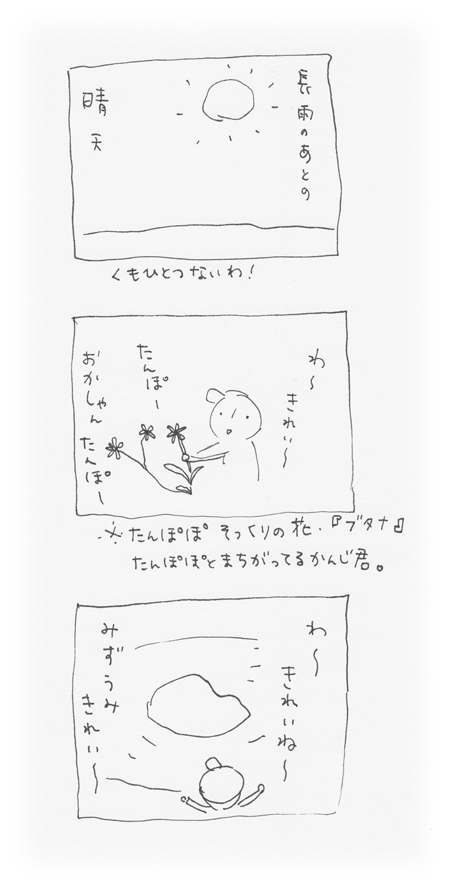 長雨のあとの
晴天
くもひとつないわ!
わ〜
きれい〜
たんぽー
おかしゃん
たんぽー
※たんぽぽそっくりの花、『ブタナ』
たんぽぽとまちがってるかんじ君。
わ〜
きれいね〜
みずうみ
きれい〜